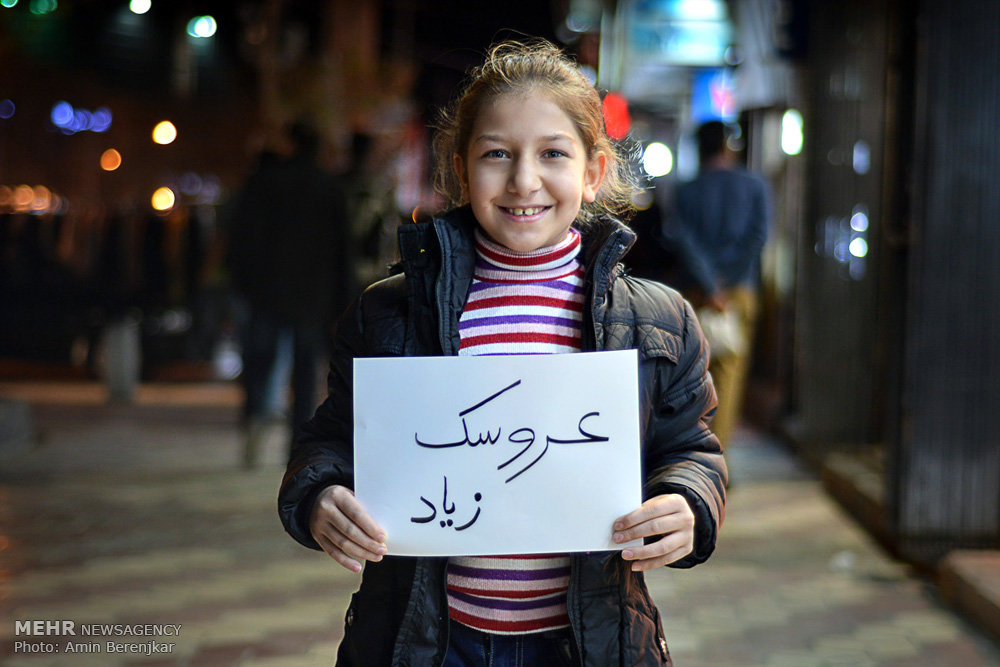 عروسک
زیاد
MEHR NEWSAGENCY
Photo: Amin Berenjkar